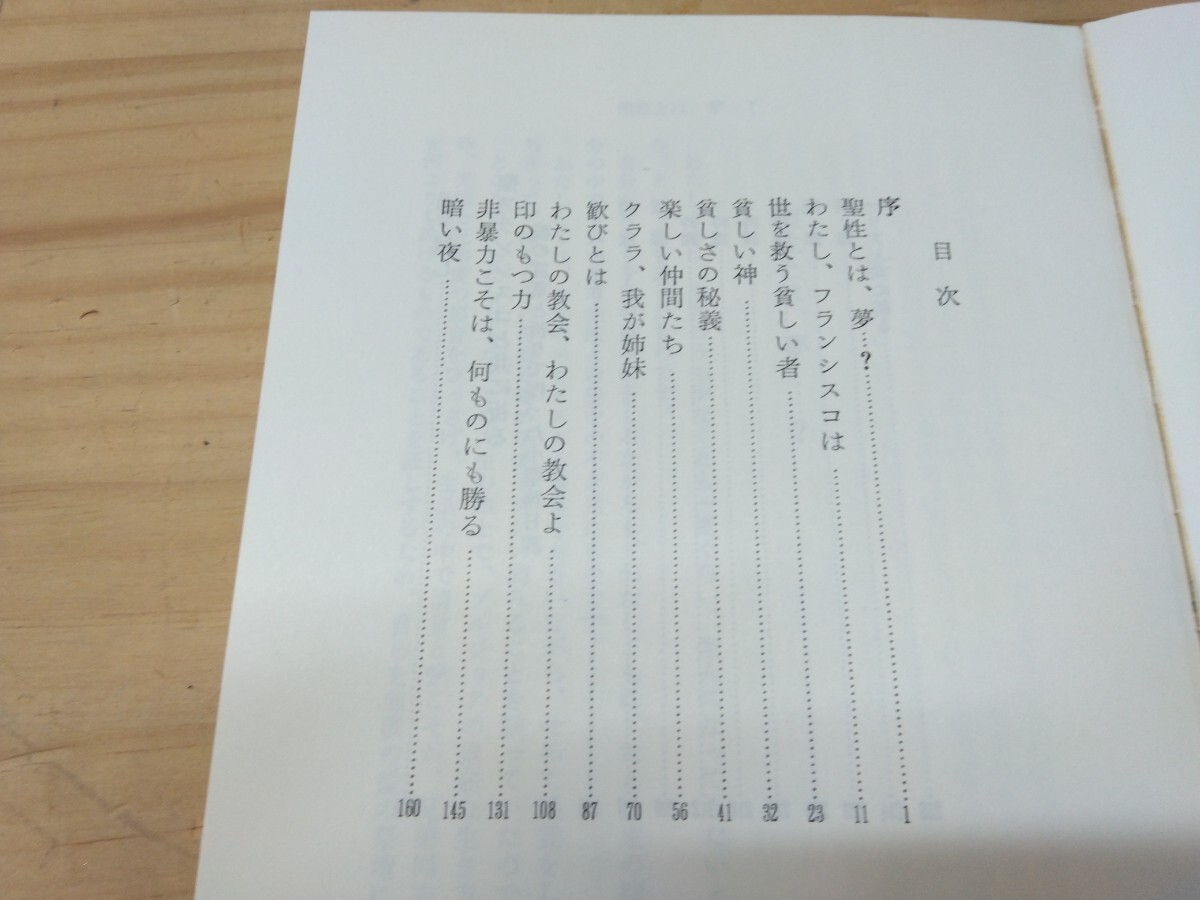 目次
序
聖性とは、夢…?……1
わたし、フランシスコは……11
世を救う貧しい者……23
貧しい神……32
貧しさの秘義……41
楽しい仲間たち……56
クララ、我が姉妹……70
歓びとは……87
わたしの教会、わたしの教会よ……108
印のもつ力……131
非暴力こそは、何ものにも勝る……145
暗い夜……160